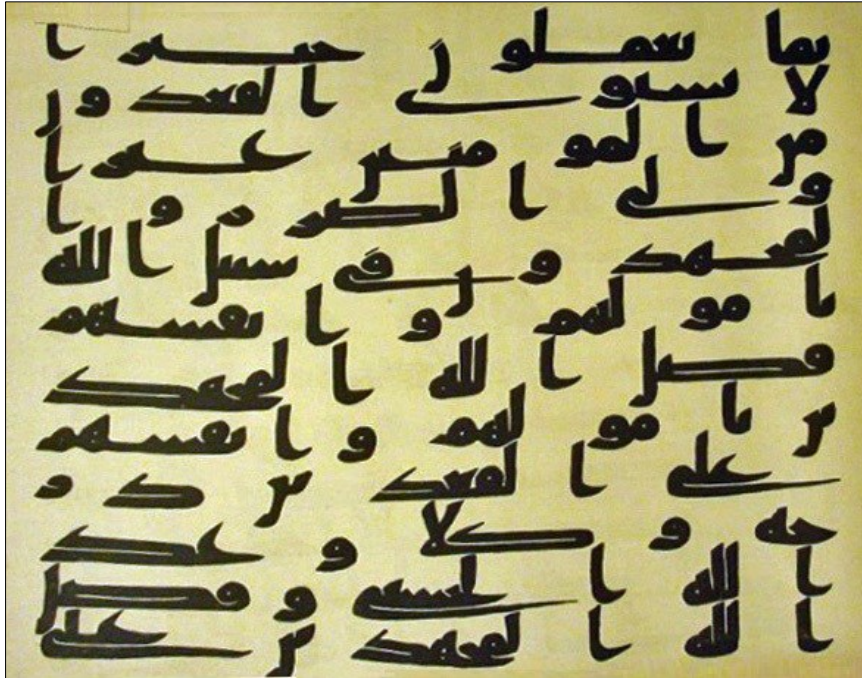 بما تعملون خبيرا
لا يستوي القعدون
من المومنين غير ا
ولي الضرر وا
لمجهدون في سبيل الله
بامولهم وانفسهم
فضل الله المجهد
ين بامولهم وانفسهم
على القعدين در
جه وكلا وعد
الله الحسنى وفضل
الله المجهدين على